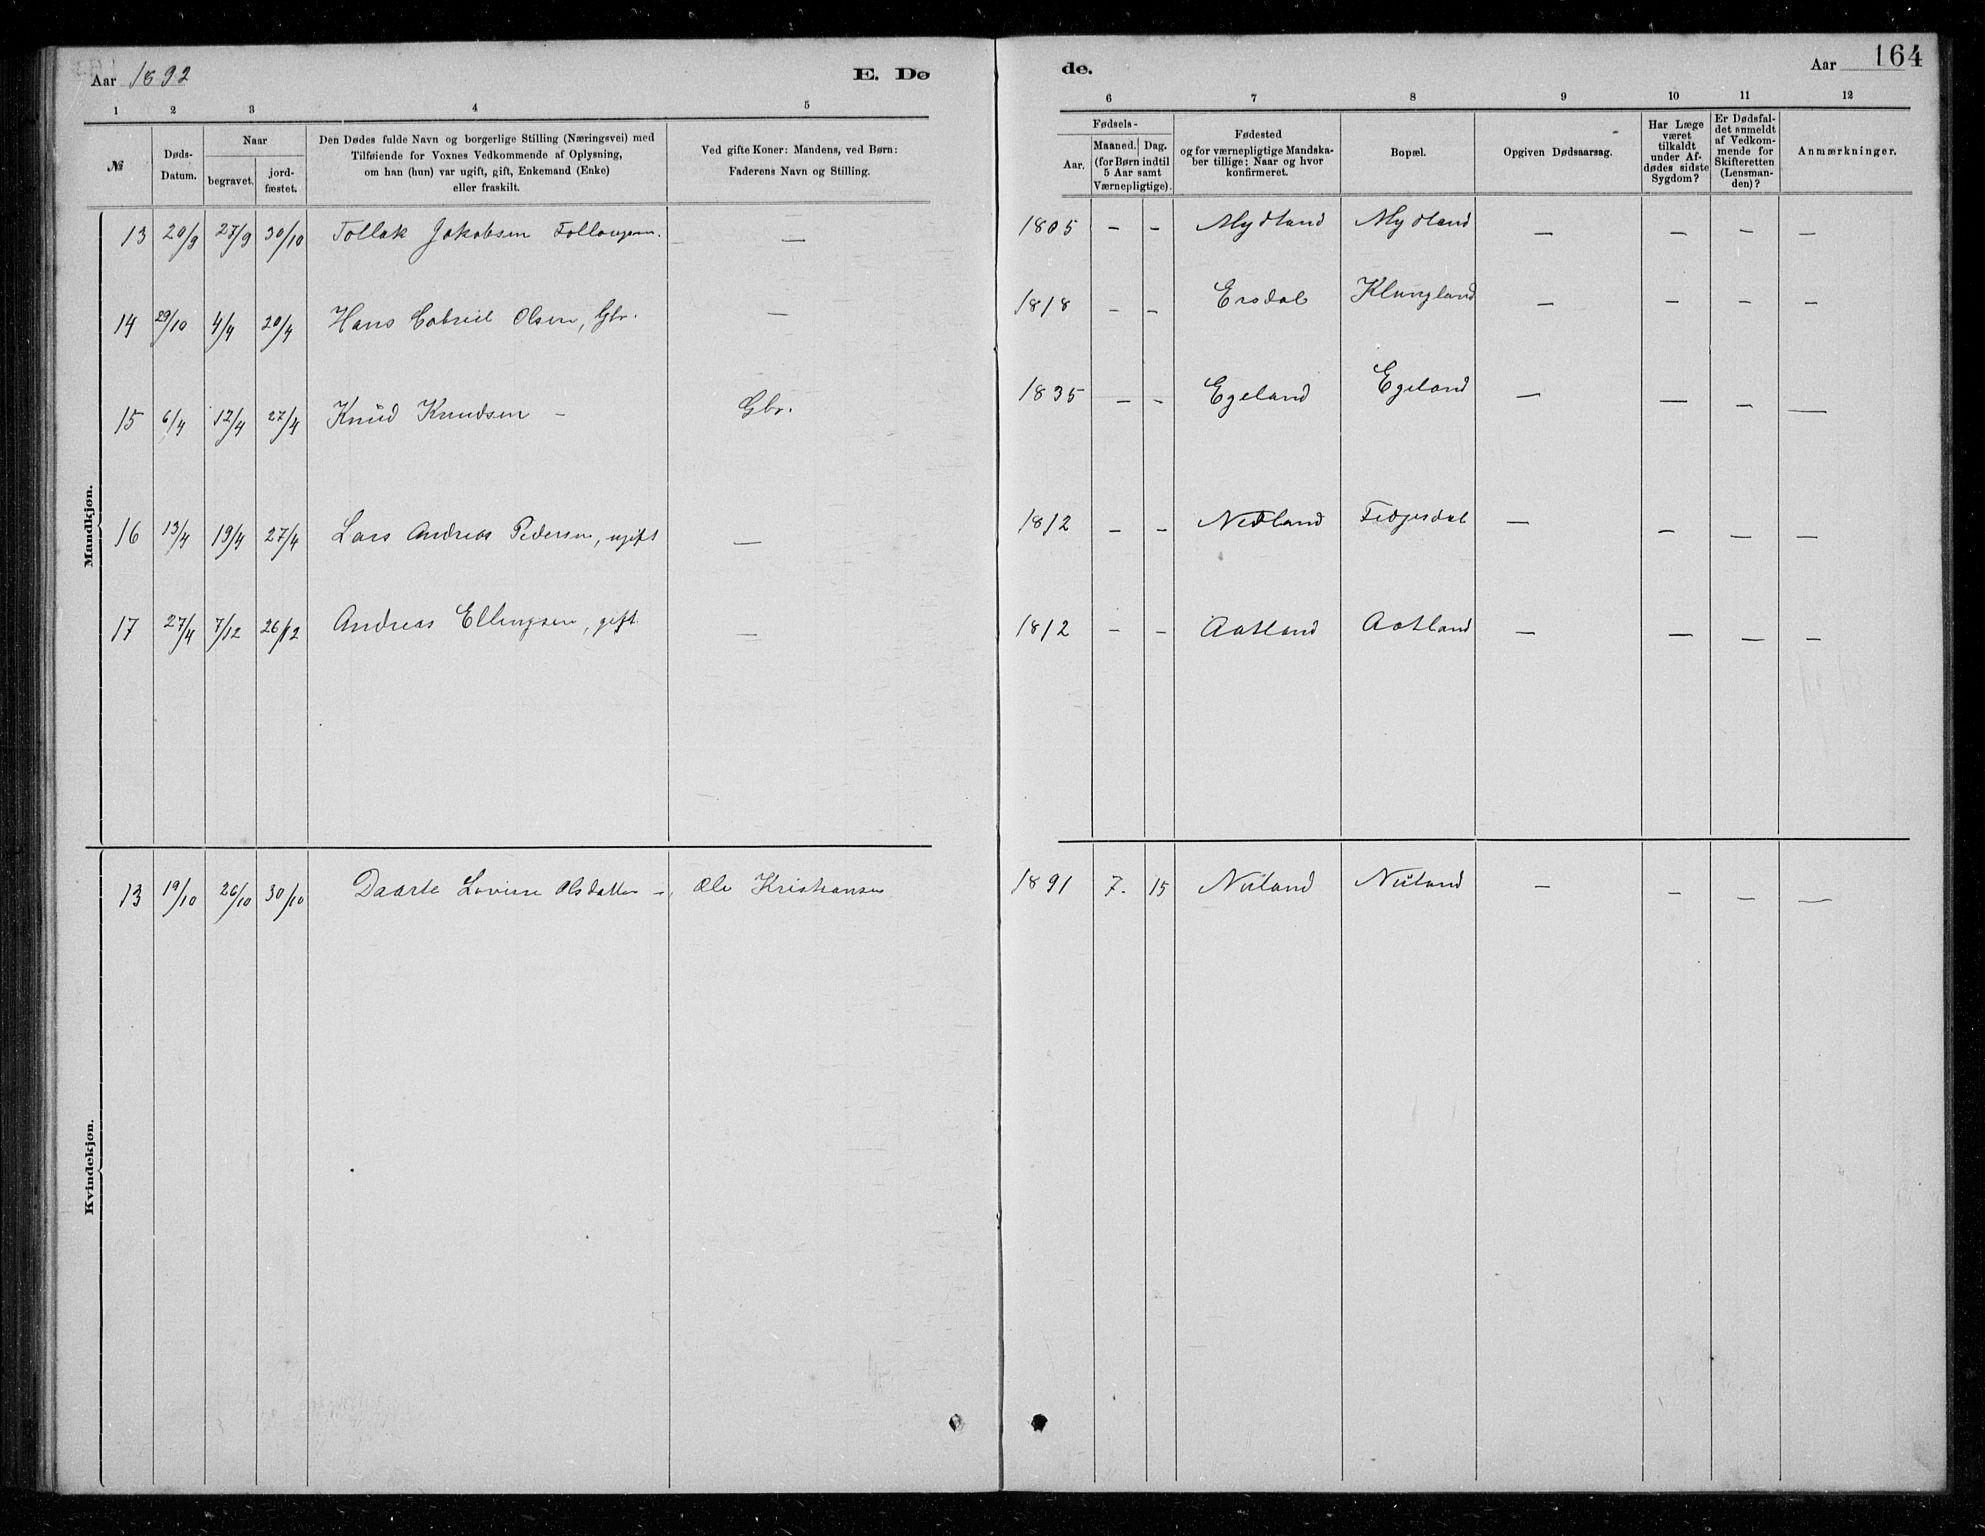 Aar 1892
E. Dø
de.
Aar
164
1 2 3 4 5 6 7 8 9 10 11 12
№
Døds-
Datum.
Naar
begravet.
jord-
fæstet.
Den Dødes fulde Navn og borgerlige Stilling (Næringsvei) med
Tilføiende for Voxnes Vedkommende af Oplysning,
om han (hun) var ugift, gift, Enkemand (Enke)
eller fraskilt.
Ved gifte Koner: Mandens, ved Børn:
Faderens Navn og Stilling.
Fødsels-
Aar.
Maaned. Dag.
(for Børn indtil
5 Aar samt
Værnepligtige).
Fødested
og for værnepligtige Mandska-
ber tillige: Naar og hvor
konfirmeret.
Bopæl.
Opgiven Dødsaarsag.
Har Læge
været
tilkaldt
under Af-
dødes sidste
Sygdom?
Er Dødsfal-
det anmeldt
af Vedkom-
mende for
Skifteretten
(Lensman-
den)?
Anmærkninger.
Mandkjøn.
13 20/9 27/9 30/10 Tollak Jakobsen — 1805 — — Mydland Mydland — — — —
14 29/10 4/4 20/4 Hans Gabriel Olsen, Gbr. — 1818 — — Ersdal Klungland — — — —
15 6/4 12/4 27/4 Knud Knudsen — Gbr. 1835 — — Egeland Egeland — — — —
16 13/4 19/4 27/4 Lars Andreas Pedersen, ugift — 1812 — — Nedland — — — —
17 27/4 7/12 26/12 Andreas Ellingsen, gift — 1812 — — Aatland Aatland — — — —
Kvindekjøn.
13 19/10 26/10 30/10 Daarte Lovise Olsdatter —, Ole Kristiansen 1891 7. 15 Nuland Nuland — — — —